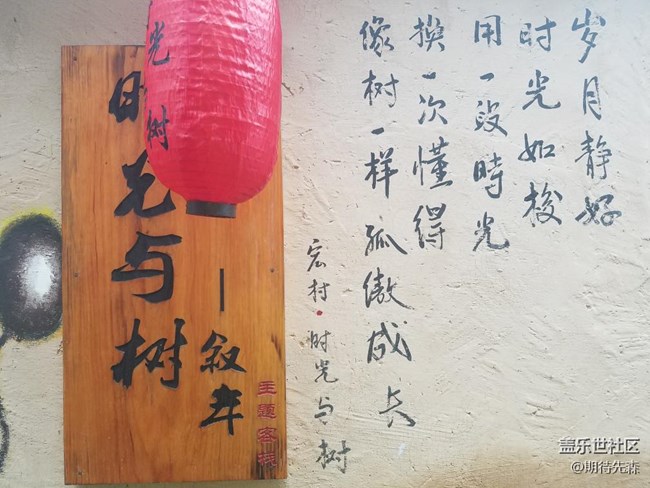 岁月静好
时光如梭
用一段時光
换一次懂得
像树一样孤傲成长
宏村·时光与树
光树
时光与树
—叙年
主题客栈
盖乐世社区
@期待先森